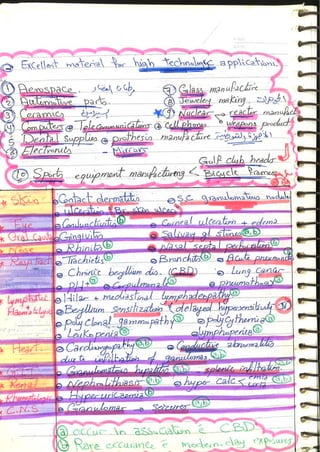 Excellent material for high technology applications.
① Aerospace ⑦ Glass manufacture
② Automotive parts ⑧ Jewelry making
③ Ceramics ⑨ Nuclear reactor manufact
④ Computers Telecommunication cell phones weapons product
⑤ Dental supplies prosthesis manufacture
⑥ Electronics Mirrors
Golf club heads
⑩ Sports equipment manufacturing Bicycle frames
Skin Contact dermatitis S.C granulomatous nodules
ulceration skin ulcers
Eye Conjunctivitis (b) Corneal ulceration + edema
Oral Cavity Gingivitis Salivary gl stones (a,b)
Nose Rhinitis (b) Nasal septal perforation (b)
Respirat Tracheitis (b) Bronchitis (b) Acute pneumonitis
Chronic beryllium dis. (CBD) lung cancer
Corpulmonale (a) pneumothorax (a)
Lymphatic Hilar + mediastinal lymphadenopathy (a)
Beryllium Sensitization (delayed hypersensitivity IV)
Polyclonal gammopathy (a) polycythemia (a)
Leukopenia (a) lymphopenia (a)
Heart Cardiomyopathy (a,b) Conductive abnormalities
due to infiltration of granulomas (a,b)
GIT Granulomatous hepatitis (a,b) splenic infiltration (a,b)
Renal Nephrolithiasis (a,b) hyper calc
Hyperuricaemia (b)
C.N.S Granulomas → seizures (a,b)
(a) occur in association ē CBD
(b) Rare occurance ē modern-day exposures